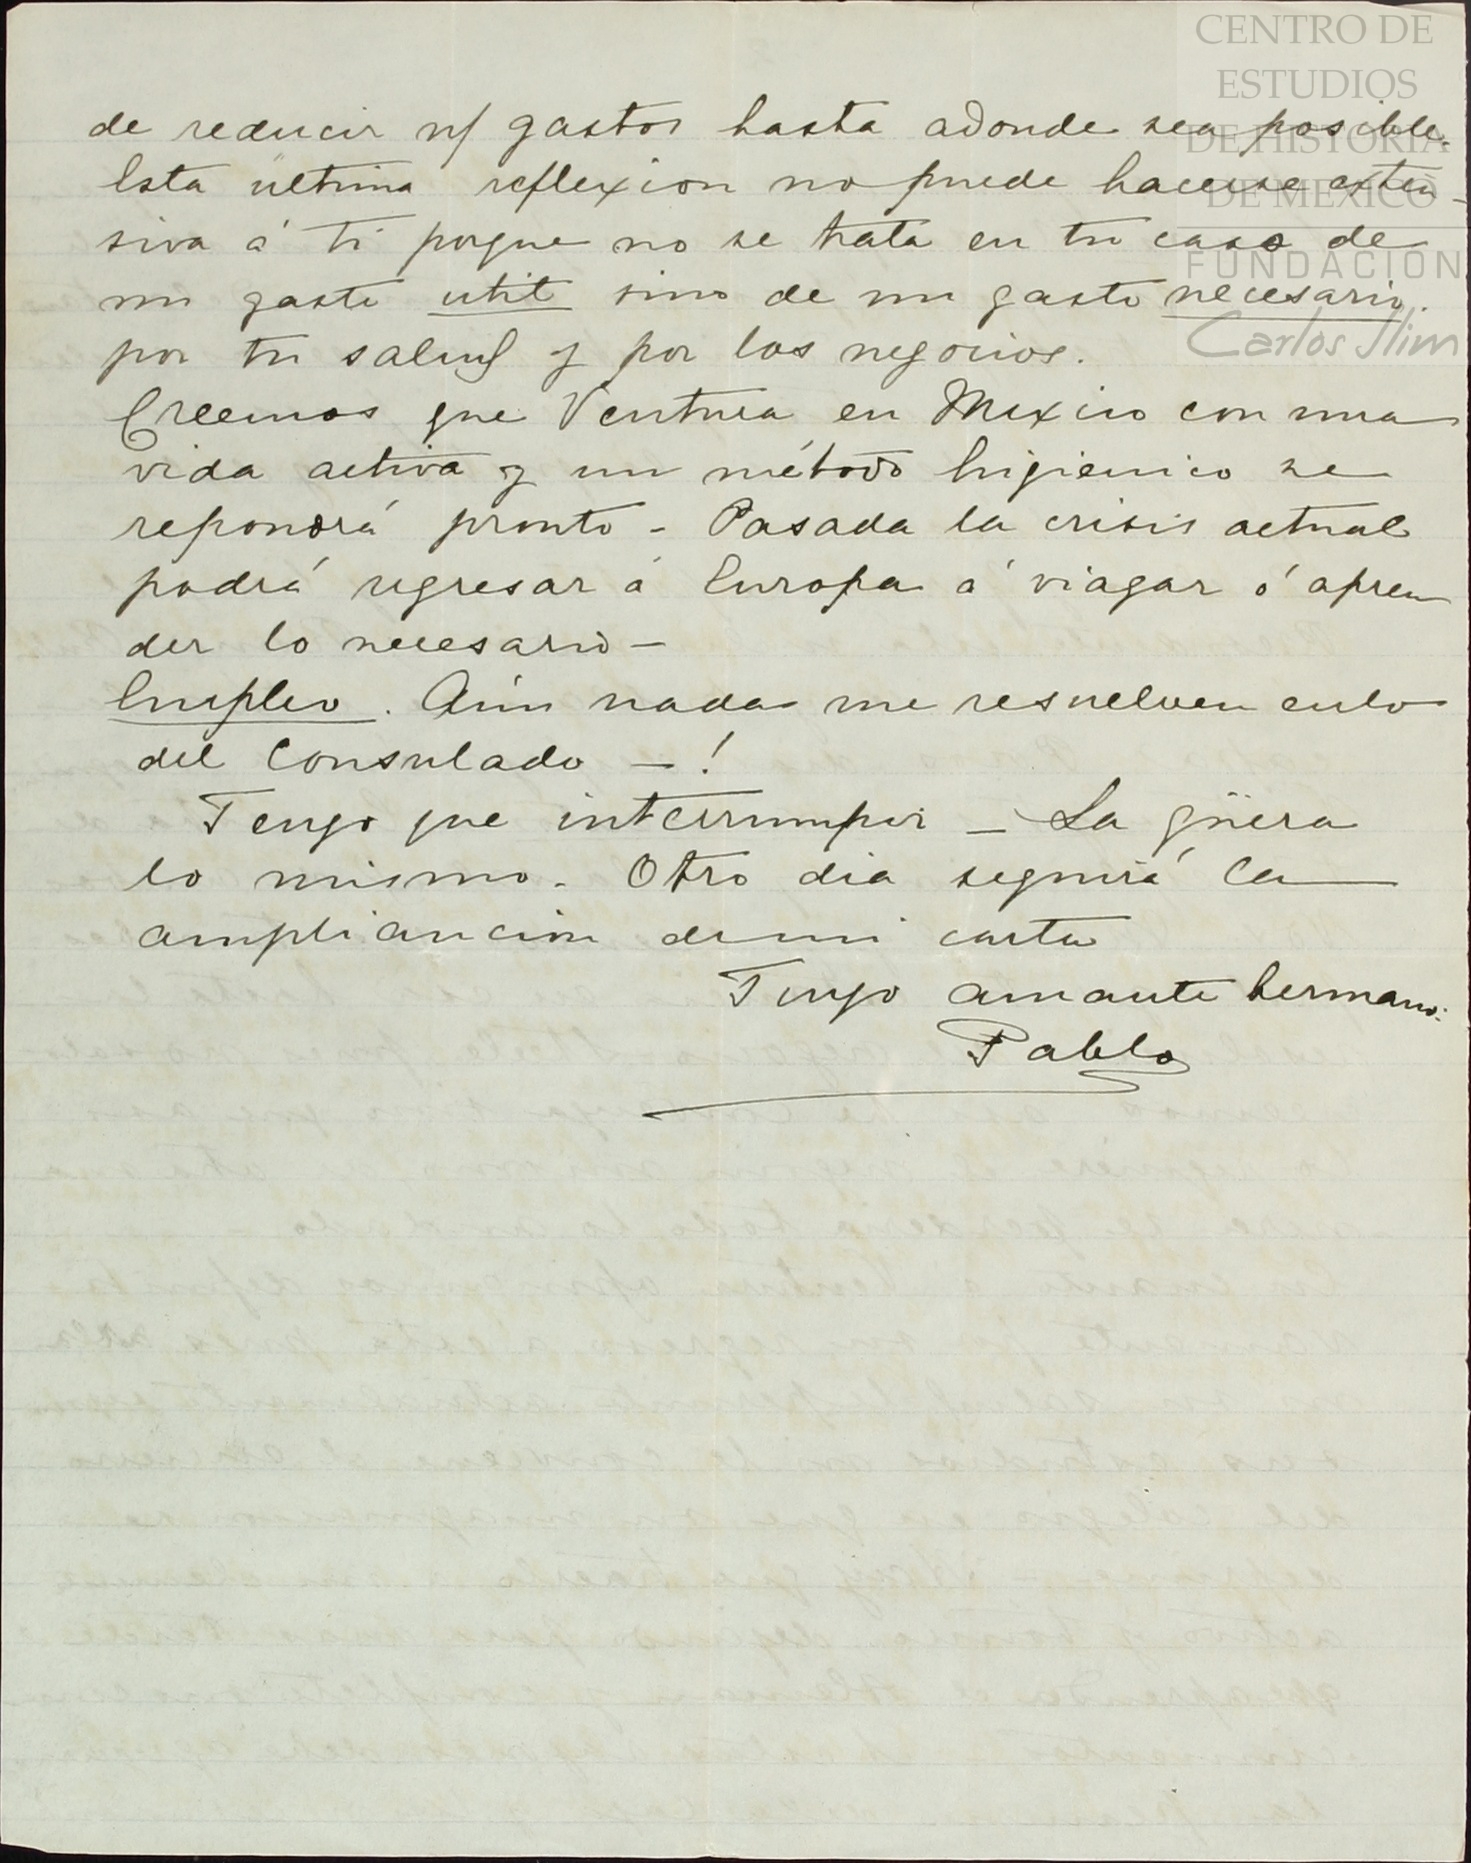 CENTRO DE
ESTUDIOS
DE HISTORIA
DE MEXICO
FUNDACIÓN
Carlos Slim
de reducir n/ gastos hasta adonde sea posible.
Esta ultima reflexion no puede hacerse exten-
siva á ti porque no se trata en tu caso de
un gasto util sino de un gasto necesario.
por tu salud y por los negocios.
Creemos que Ventura en Mexico con una
vida activa y un método higienico se
repondrá pronto - Pasada la crisis actual
podrá regresar á Europa á viagar ó apren
der lo necesario -
Empleo. Aún nada me resuelven en lo
del Consulado - !
Tengo que interrumpir - La güera
lo mismo. Otro dia seguirá la
ampliancion de mi carta
Tuyo amante hermano:
Pablo